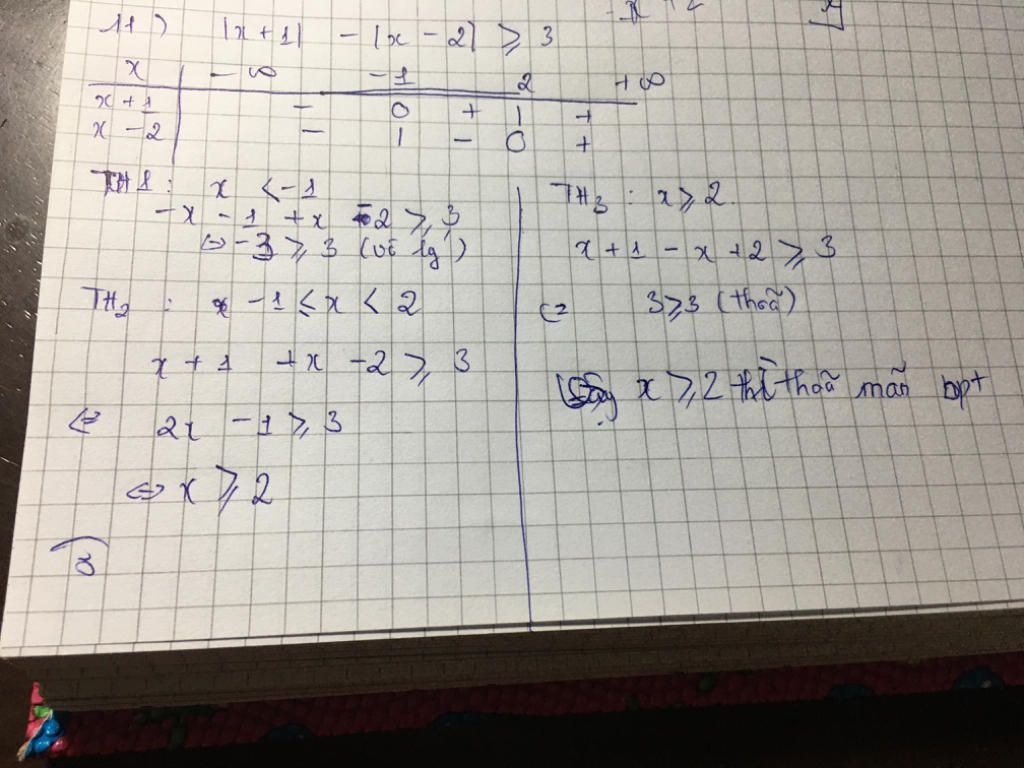 11) |x+1| - |x-2| ⩾ 3
x -∞ -1 2 +∞
x+1 - 0 + | +
x-2 - | - 0 +
TH1: x < -1
-x - 1 + x - 2 ⩾ 3
⇔ -3 ⩾ 3 (vô lý)
TH2: -1 ⩽ x < 2
x + 1 + x - 2 ⩾ 3
⇔ 2x - 1 ⩾ 3
⇔ x ⩾ 2
3
TH3: x ⩾ 2.
x + 1 - x + 2 ⩾ 3
⇔ 3 ⩾ 3 (thoã)
x ⩾ 2 thì thoã mãn bpt